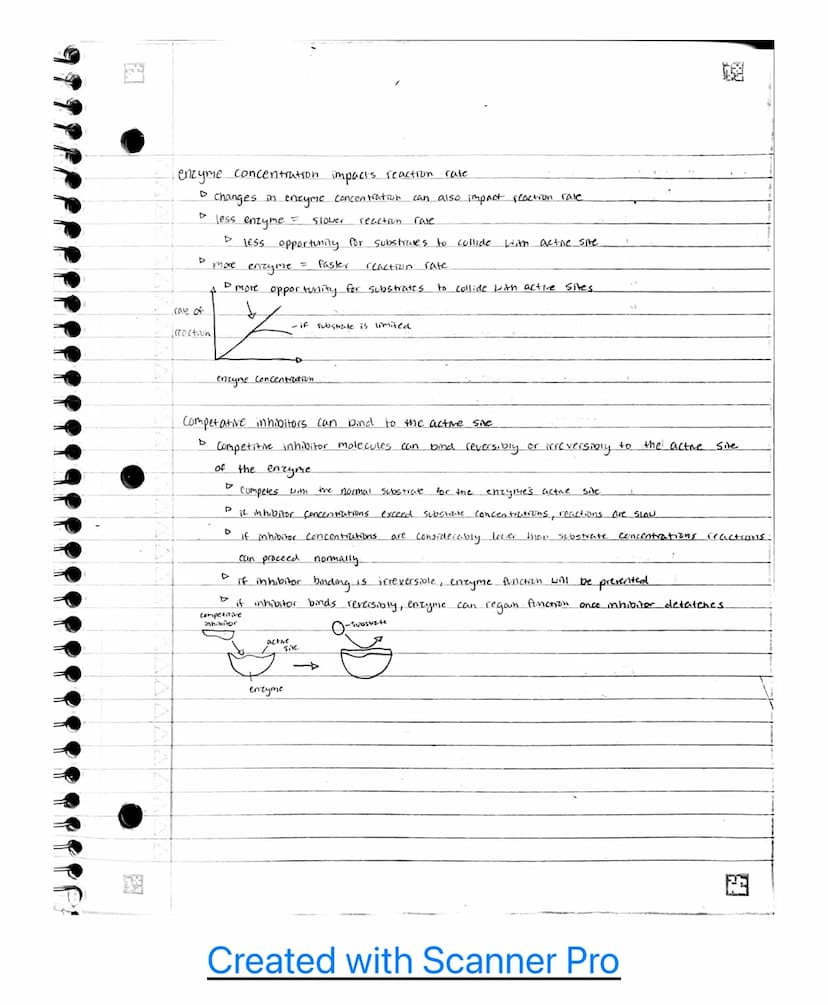 enzyme concentration impacts reaction rate
▷ changes in enzyme concentration can also impact reaction rate
▷ less enzyme = slower reaction rate
▷ less opportunity for substrates to collide with active site
▷ more enzyme = faster reaction rate
▷ more opportunity for substrates to collide with active sites
rate of
reaction
-if substrate is limited
enzyme concentration
Competative inhibitors can bind to the active site
▷ Competitive inhibitor molecules can bind reversibly or irreversibly to the active site
of the enzyme
▷ Competes with the normal substrate for the enzyme's active site
▷ if inhibitor concentrations exceed substrate concentrations, reactions are slow
▷ if inhibitor concentrations are considerably lower than substrate concentrations reactions
can proceed normally
▷ if inhibitor binding is irreversible, enzyme function will be prevented
▷ if inhibitor binds reversibly, enzyme can regain function once inhibitor detatches
competitive
inhibitor
active
site
enzyme
-substrate
Created with Scanner Pro